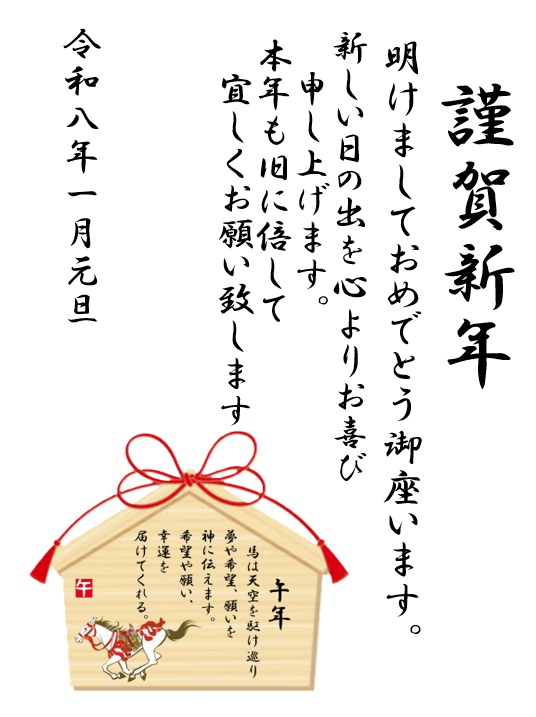 謹賀新年
明けましておめでとう御座います。
新しい日の出を心よりお喜び
申し上げます。
本年も旧に倍して
宜しくお願い致します
令和八年一月元旦
午年
馬は天空を駆け巡り
夢や希望、願いを
神に伝えます。
希望や願い、
幸運を
届けてくれる。
午